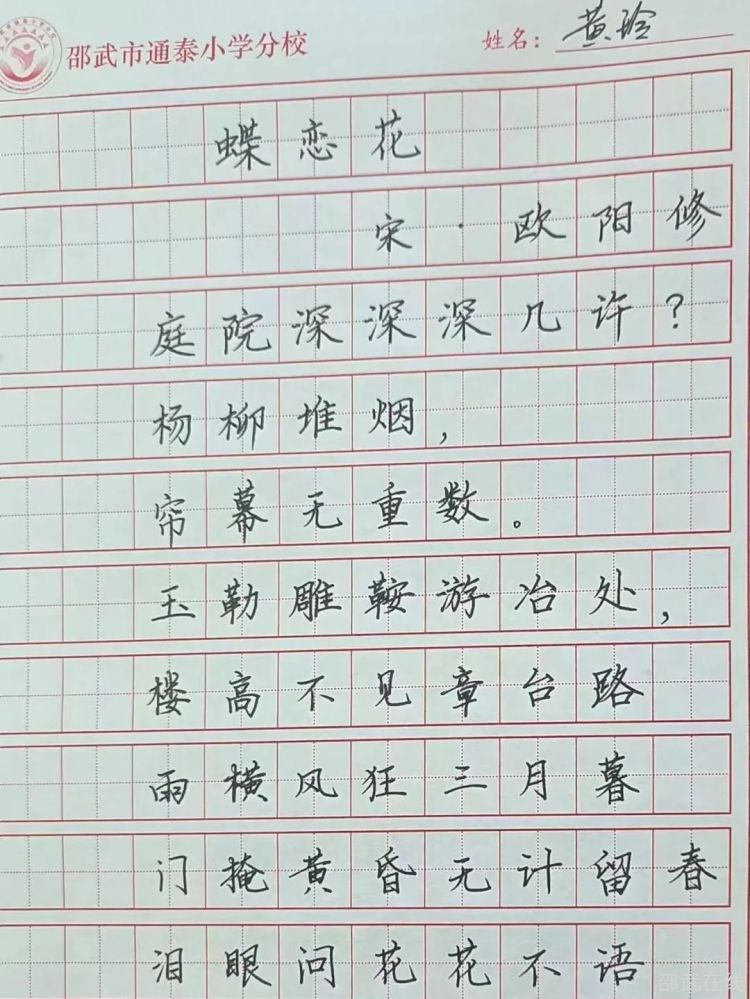 邵武市通泰小学分校
姓名：黄玲
蝶恋花
宋·欧阳修
庭院深深深几许？
杨柳堆烟，
帘幕无重数。
玉勒雕鞍游冶处，
楼高不见章台路
雨横风狂三月暮
门掩黄昏无计留春
泪眼问花花不语
邵武在线